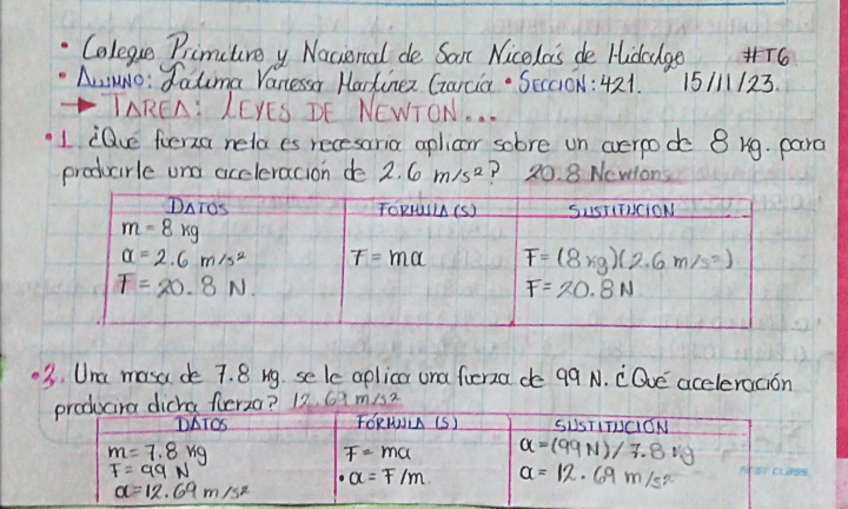 • Colegio Primitivo y Nacional de San Nicolás de Hidalgo #T6
• ALUMNO: Fátima Vanessa Martínez García • SECCIÓN: 421. 15/11/23.
→ TAREA: LEYES DE NEWTON...
•1. ¿Qué fuerza neta es necesaria aplicar sobre un cuerpo de 8 kg. para
producirle una aceleración de 2.6 m/s²? 20.8 Newtons
DATOS FÓRMULA (S) SUSTITUCIÓN
m = 8 kg
a = 2.6 m/s² F = ma F = (8 kg)(2.6 m/s²)
F = 20.8 N. F = 20.8 N
•2. Una masa de 7.8 kg. se le aplica una fuerza de 99 N. ¿Qué aceleración
producira dicha fuerza? 12.69 m/s²
DATOS FÓRMULA (S) SUSTITUCIÓN
m = 7.8 kg F = ma a = (99 N) / 7.8 kg
F = 99 N • a = F/m. a = 12.69 m/s²
a = 12.69 m/s²
FIRST CLASS